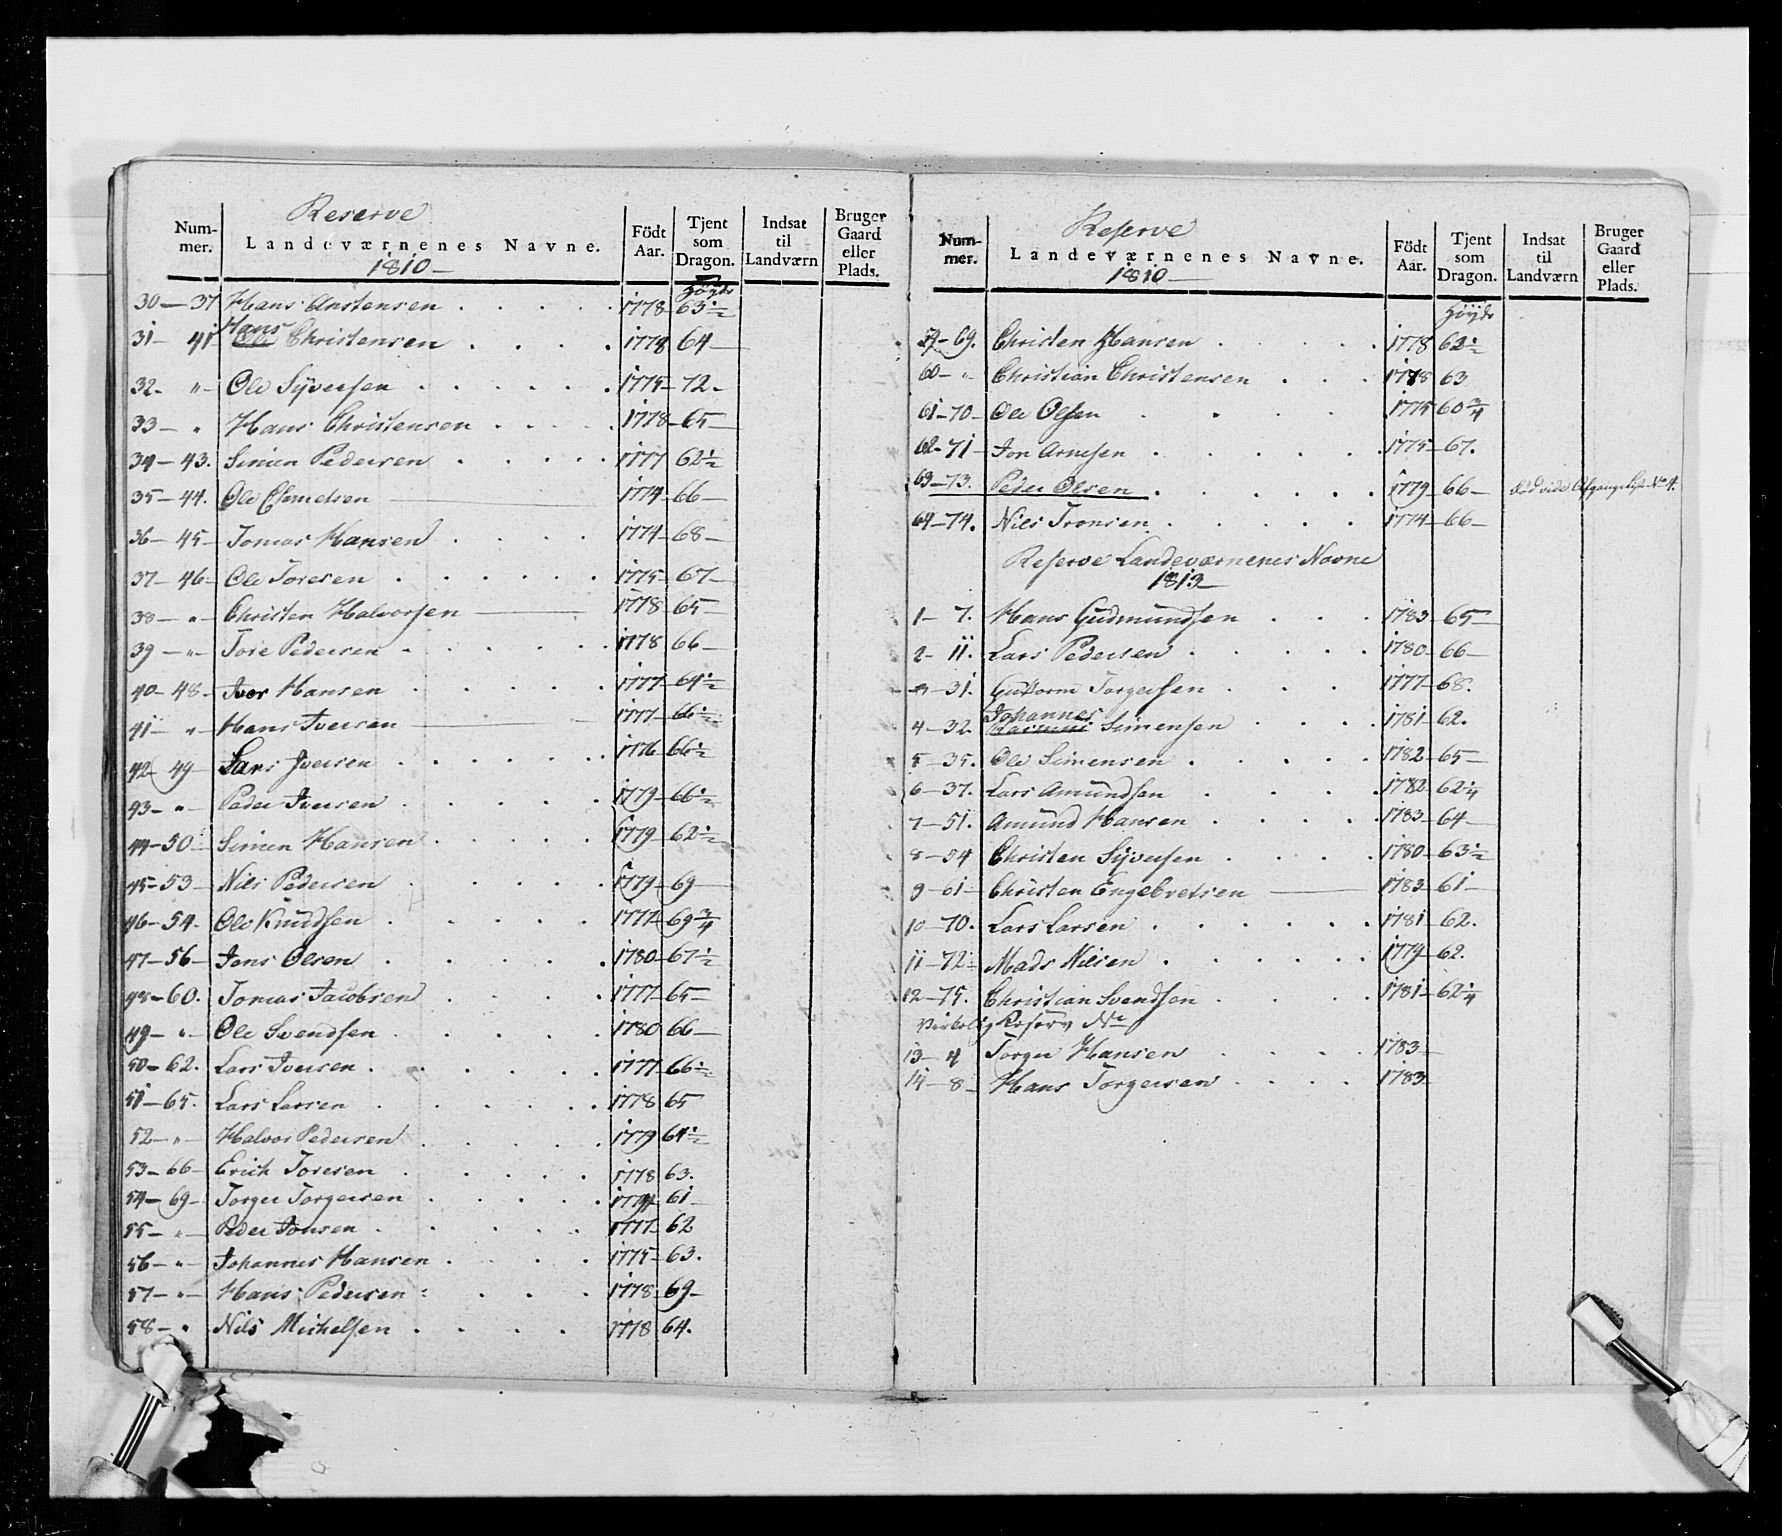 Reserve
Num-
mer.
Landeværnenes Navne.
1810
Födt
Aar.
Tjent
som
Dragon.
Indsat
til
Landværn
Bruger
Gaard
eller
Plads.
Høyde
30 — 37 Hans Anstensen 1778 63½
31 — 41 Hans Ole Christensen 1778 64
32 — " Ole Syversen 1775 72
33 — " Hans Christensen 1778 65
34 — 43. Simen Pedersen 1777 62½
35 — 44. Ole 1774 66
36 — 45 Tomas Hansen 1774 68
37 — 46 Ole Toresen 1775 67
38 — " Christen Halvorsen 1778 65
39 — " Tore Pedersen 1778 66
40 — 48 Iver Hansen 1777 64½
41 — " Hans Iversen 1777 66½
42 — 49 Lars Iversen 1776 66½
43 — " Peder Iversen 1779 66½
44 — 50 Simen Hansen 1779 62½
45 — 53 Nils Pedersen 1779 69
46 — 54. Ole Knudsen 1777 69¾
47 — 56 Jens Olsen 1780 67½
48 — 60. Tomas Jacobsen 1777 65
49 — " Ole Svendsen 1780 66
50 — 62. Lars Iversen 1777 66½
51 — 65. Lars Larsen 1778 65
52 — " Halvor Pedersen 1779 64½
53 — 66 Erich Toresen 1778 63.
54 — 69 Torger Torgersen 1774 61
55 — " Peder Jonsen 1777 62
56 — " Johannes Hansen 1775 63.
57 — " Hans Pedersen 1778 69
58 — " Nils Michelsen 1778 64.
Reserve
Num-
mer.
Landeværnenes Navne.
1810
Födt
Aar.
Tjent
som
Dragon.
Indsat
til
Landværn
Bruger
Gaard
eller
Plads.
Höyde
59 — 69. Christen Hansen 1778 62½
60 — " Christian Christensen 1778 63
61 — 70 Ole Olsen 1775 60¾
62 — 71 Jon Arnesen 1775 67.
63 — 73. Peder Olsen 1779 66 död vide Afgangslist No 4.
64 — 74. Nils Tronsen 1774 66
Reserve Landeværnenes Navne
1813
1 — 7. Hans Gudmundsen 1783 65
2 — 11. Lars Pedersen 1780 66
3 — 31. Guttorm Torgersen 1777 68.
4 — 32 Johannes Simensen 1781 62.
5 — 35. Ole Simensen 1782 65
6 — 37. Lars Amundsen 1782 62¼
7 — 51. Amund Hansen 1783 64
8 — 54 Christen Syversen 1780 63½
9 — 61 Christen Engebretsen 1783 61
10 — 70. Lars Larsen 1781 62.
11 — 72 Mads Nilsen 1779 62.
12 — 75. Christian Svendsen 1781 62¼
Virkelig Reserv No
13 — 4 Torger Hansen 1783
14 — 8 Hans Torgersen 1783